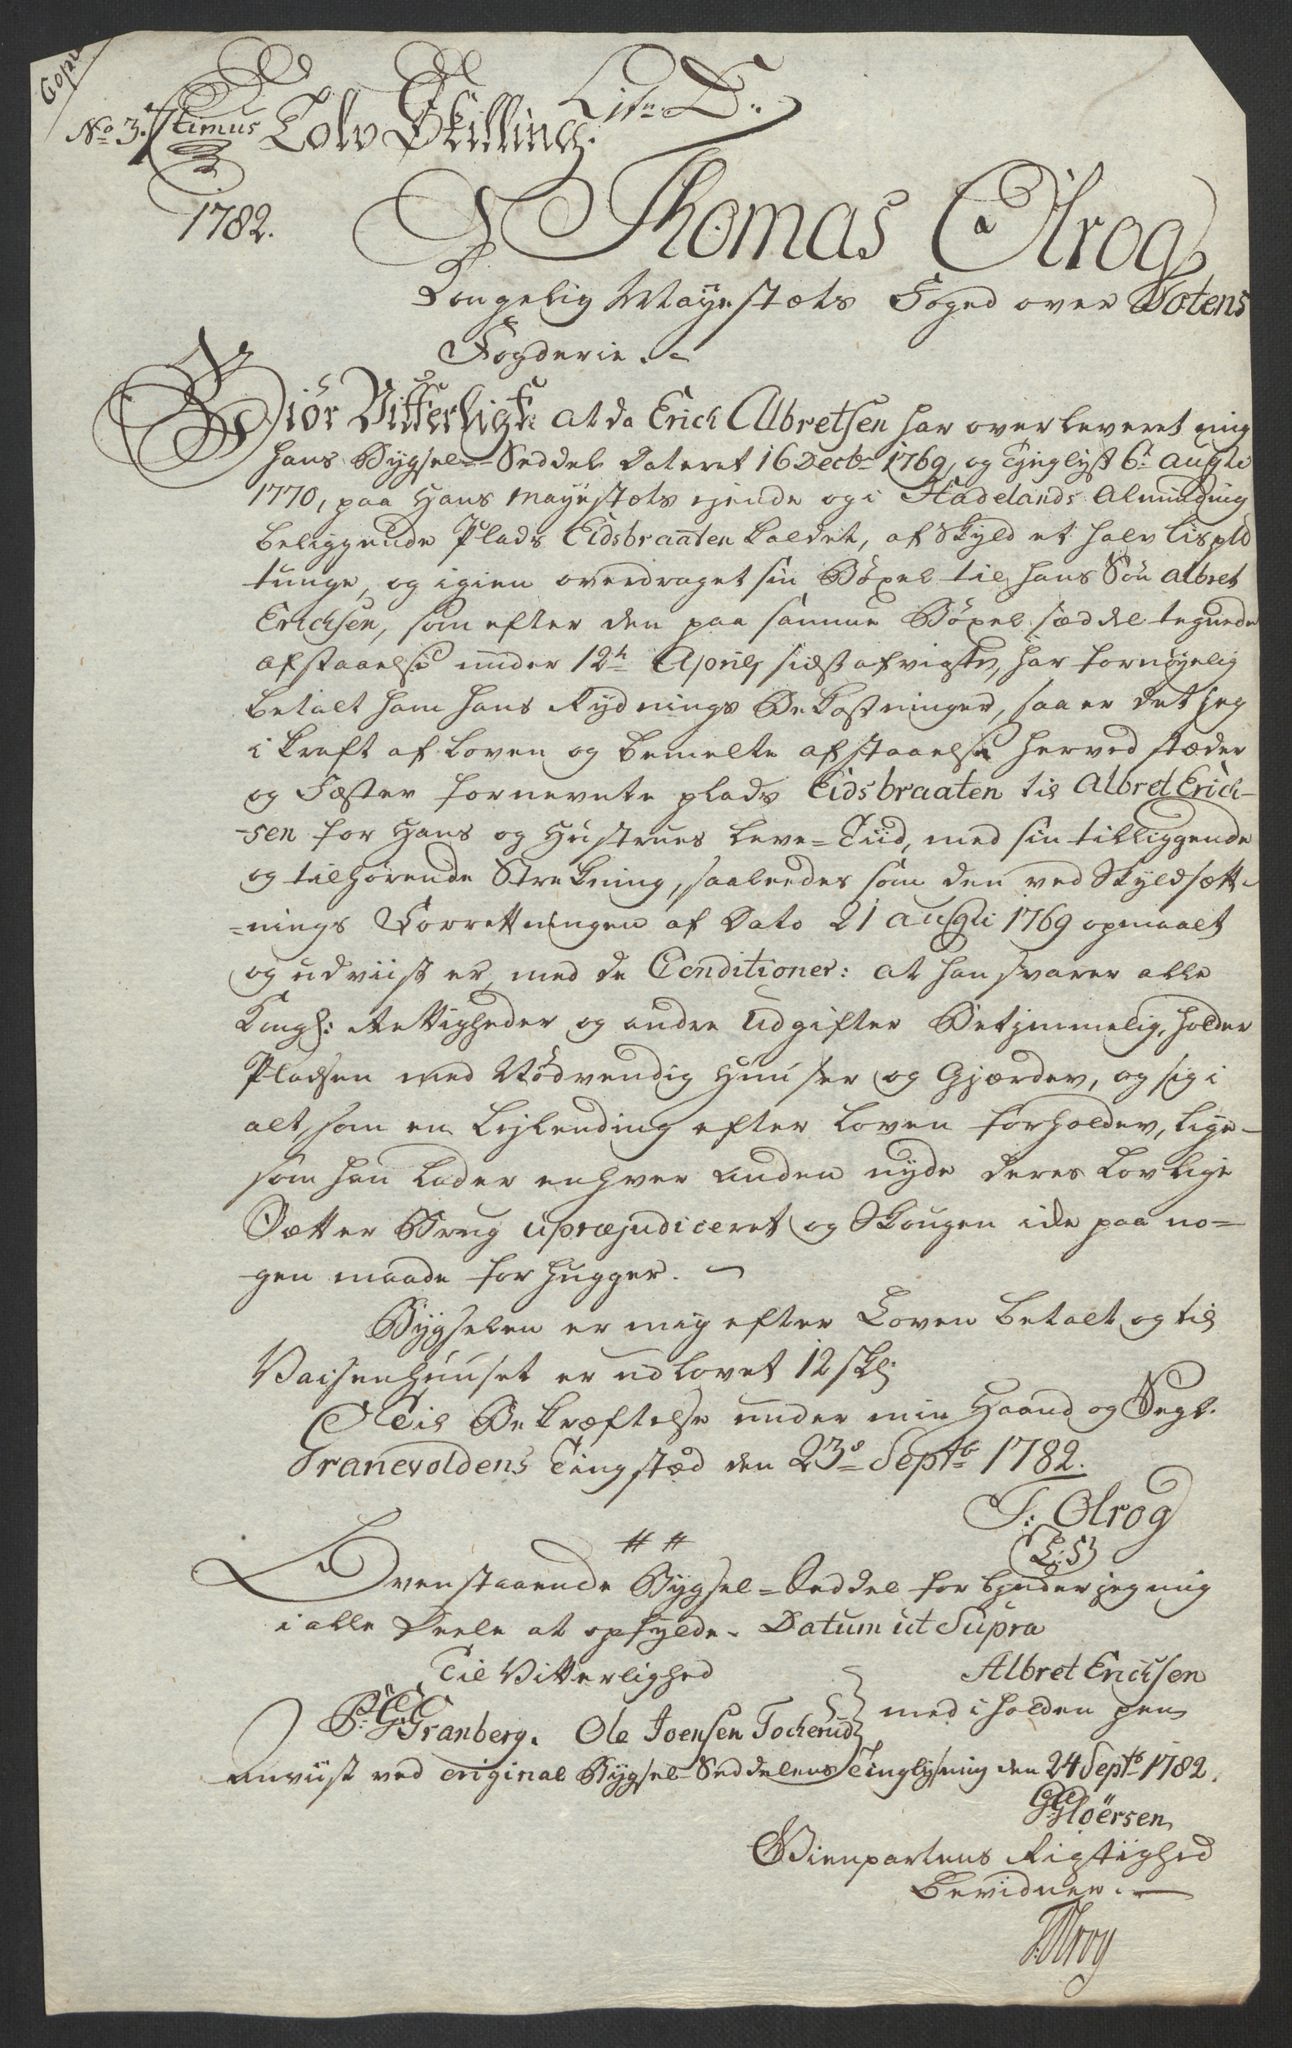 Copie
Lit: D.
No 3. 7timus Tolv Skilling.
1782.
Thomas Olrog
Kongelig Mayestæts Foged over Totens
Fogderie.
Giör Vitterligt at da Erich Albretsen har overleveret mig
hans Bygsel-Seddel Dateret 16 Decbr 1769, og Tinglyst 6t Augti
1770, paa Hans Mayestæts ejende og i Hadelands Alminding
beliggende Plads Eidsbraaten kaldet, af Skyld et halv Lispld
tunge, og igien overdraget sin Böxel til hans Sön Albret
Erichsen, som efter den paa samme Böxel sæddel tegnede
afstaaelse under 12te Aprily sidst afvigte, har fornøyelig
betalt ham hans Rydnings Bekostninger, saa er det jeg
i kraft af Loven og bemelte afstaaelse herved stæder
og Fæster fornevnte plads Eidsbraaten til Albret Erich-
-sen for Hans og Hustrues Leve-Tiid, med sin tilliggende
og tilhørende Strekning, saaledes som den ved Skyldsætt-
-nings Forrettningen af Dato 21 Augti 1769 opmaalt
og udviist er, med de Conditioner: at han svarer alle
Kongl: Rettigheder og andre Udgifter Betjimmelig, holder
Pladsen med Nödvendig Huuser og Gjærder, og sig i
alt, som en Lejlending efter Loven forholder, lige-
som han lader enhver anden nyde deres Lovlige
Sætter Brug upræjudiceret og Skougen icke paa no-
gen maade forhugger.
Bygselen er mig efter Loven betalt og til
Vaisenhuuset er udlovet 12 skl:
Til Bekræftelse under min Haand og Segl.
Granevoldens Tingstæd den 23de Septbr 1782.
T: Olrog
(L:S)
Ovenstaaende Bygsel-Seddel forbinder jeg mig
i alle Deele at opfylde. Datum ut Supra
Til Vitterlighed Albret Erichsen
P: G: Granberg. Ole Joensen Tocherud med iholden pen
Anviist ved original Bygsel-Seddelens Tinglysning den 24 Septbr 1782.
Gløersen
Gienpartens Rigtighed
bevidner.
TOlrog